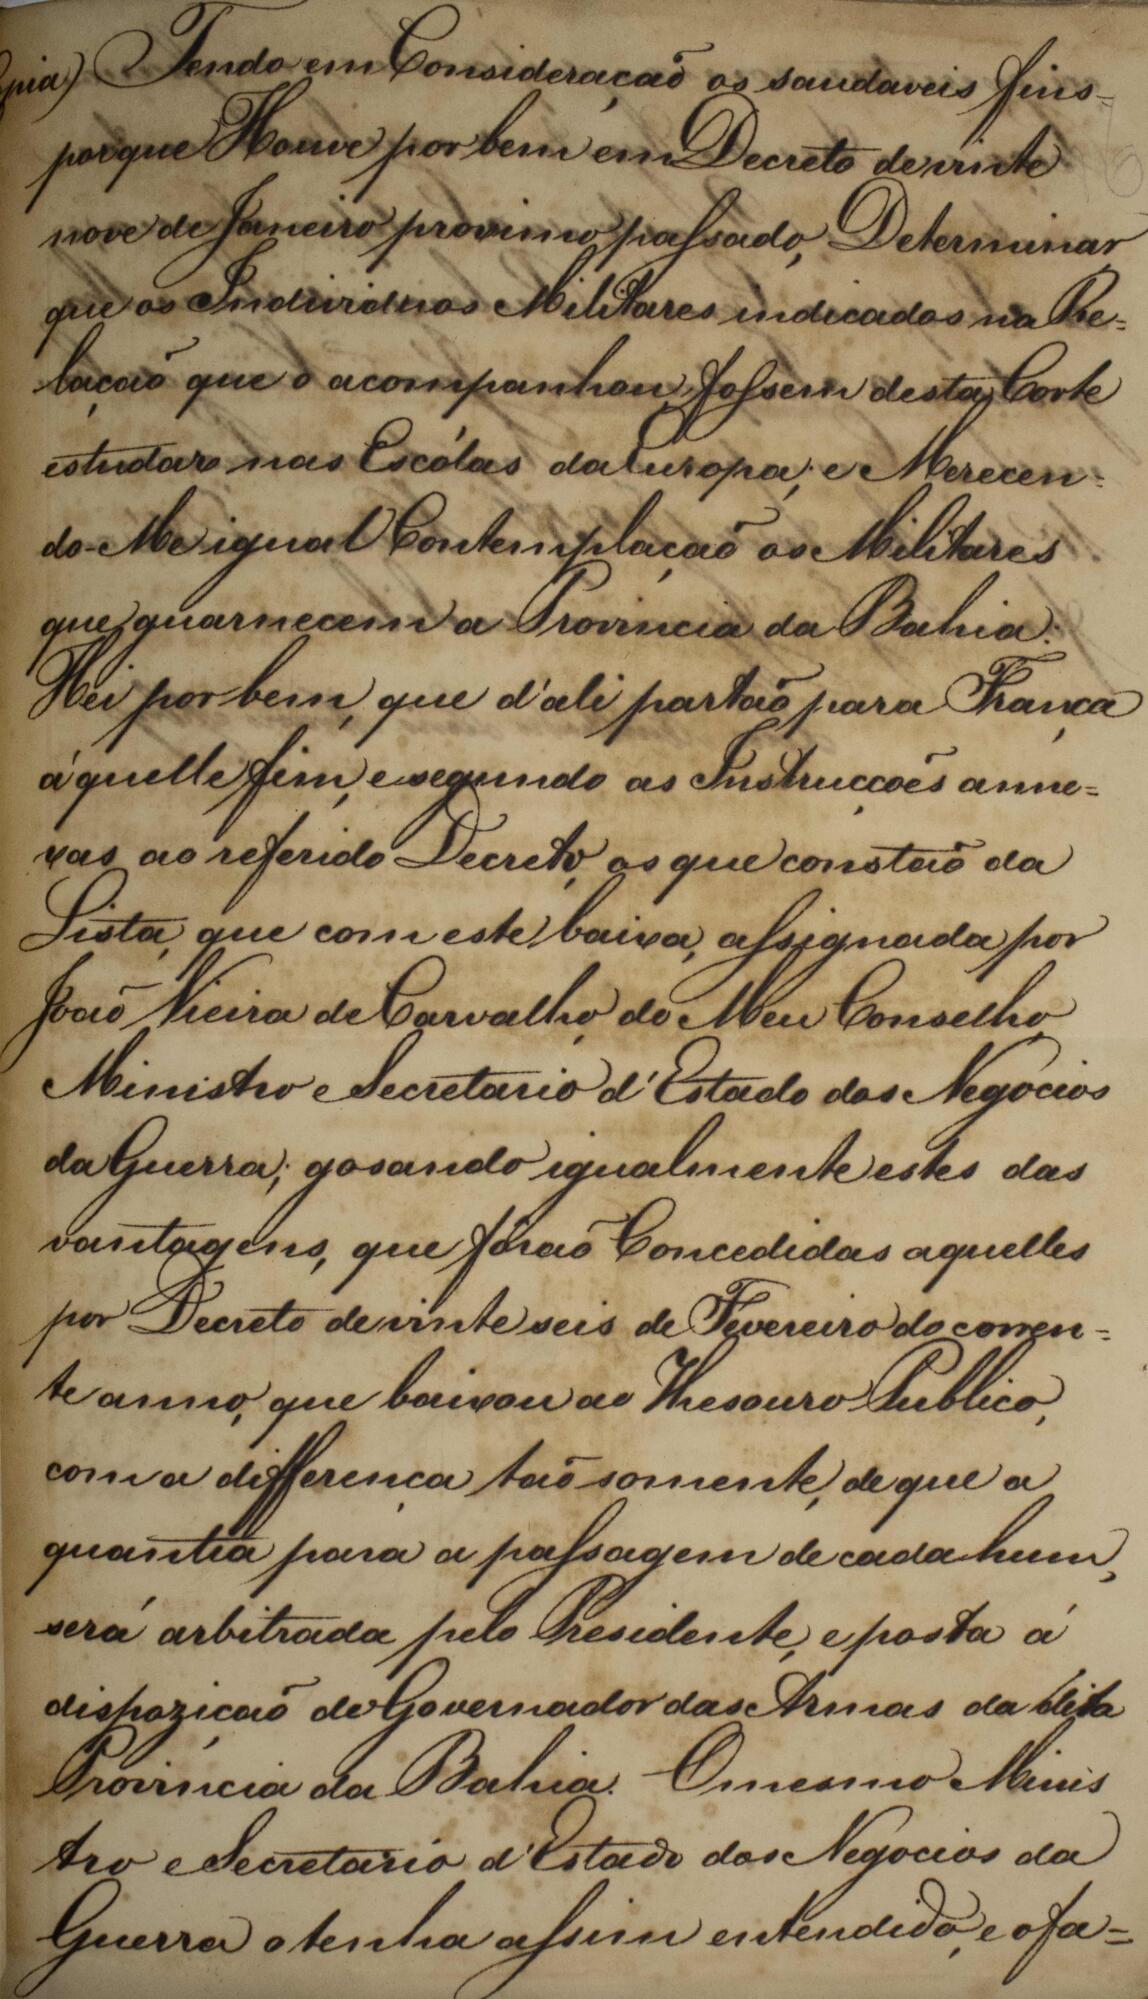 Tendo em Consideração os saudaveis fins
porque Houve por bem em Decreto de vinte
nove de Janeiro proximo passado, Determinar
que os Individuos Militares indicados na Re=
lação que o acompanhou, fossem desta Corte
estudar nas Escólas da Europa; e Merecen=
do-Me igual Contemplação os Militares
que guarnecem a Provincia da Bahia:
Hei por bem, que d'ali partaõ para França
áquelle fim, e segundo as Instrucções anne=
xas ao referido Decreto, os que constaõ da
Lista, que com este baixa, assignada por
João Vieira de Carvalho, do Meu Conselho
Ministro e Secretario d'Estado dos Negócios
da Guerra; gosando igualmente estes das
vantagens, que fôraõ Concedidas aquelles
por Decreto de vinte seis de Fevereiro do corren=
te anno, que baixou ao Thesouro Publico,
com a differença taõ somente, de que a
quantia para a passagem de cada hum,
será arbitrada pelo Presidente, e posta á
dispozição do Governador das Armas da dita
Provincia da Bahia. O mesmo Minis
tro e Secretario d'Estado dos Negocios da
Guerra o tenha assim entendido, e o fa=